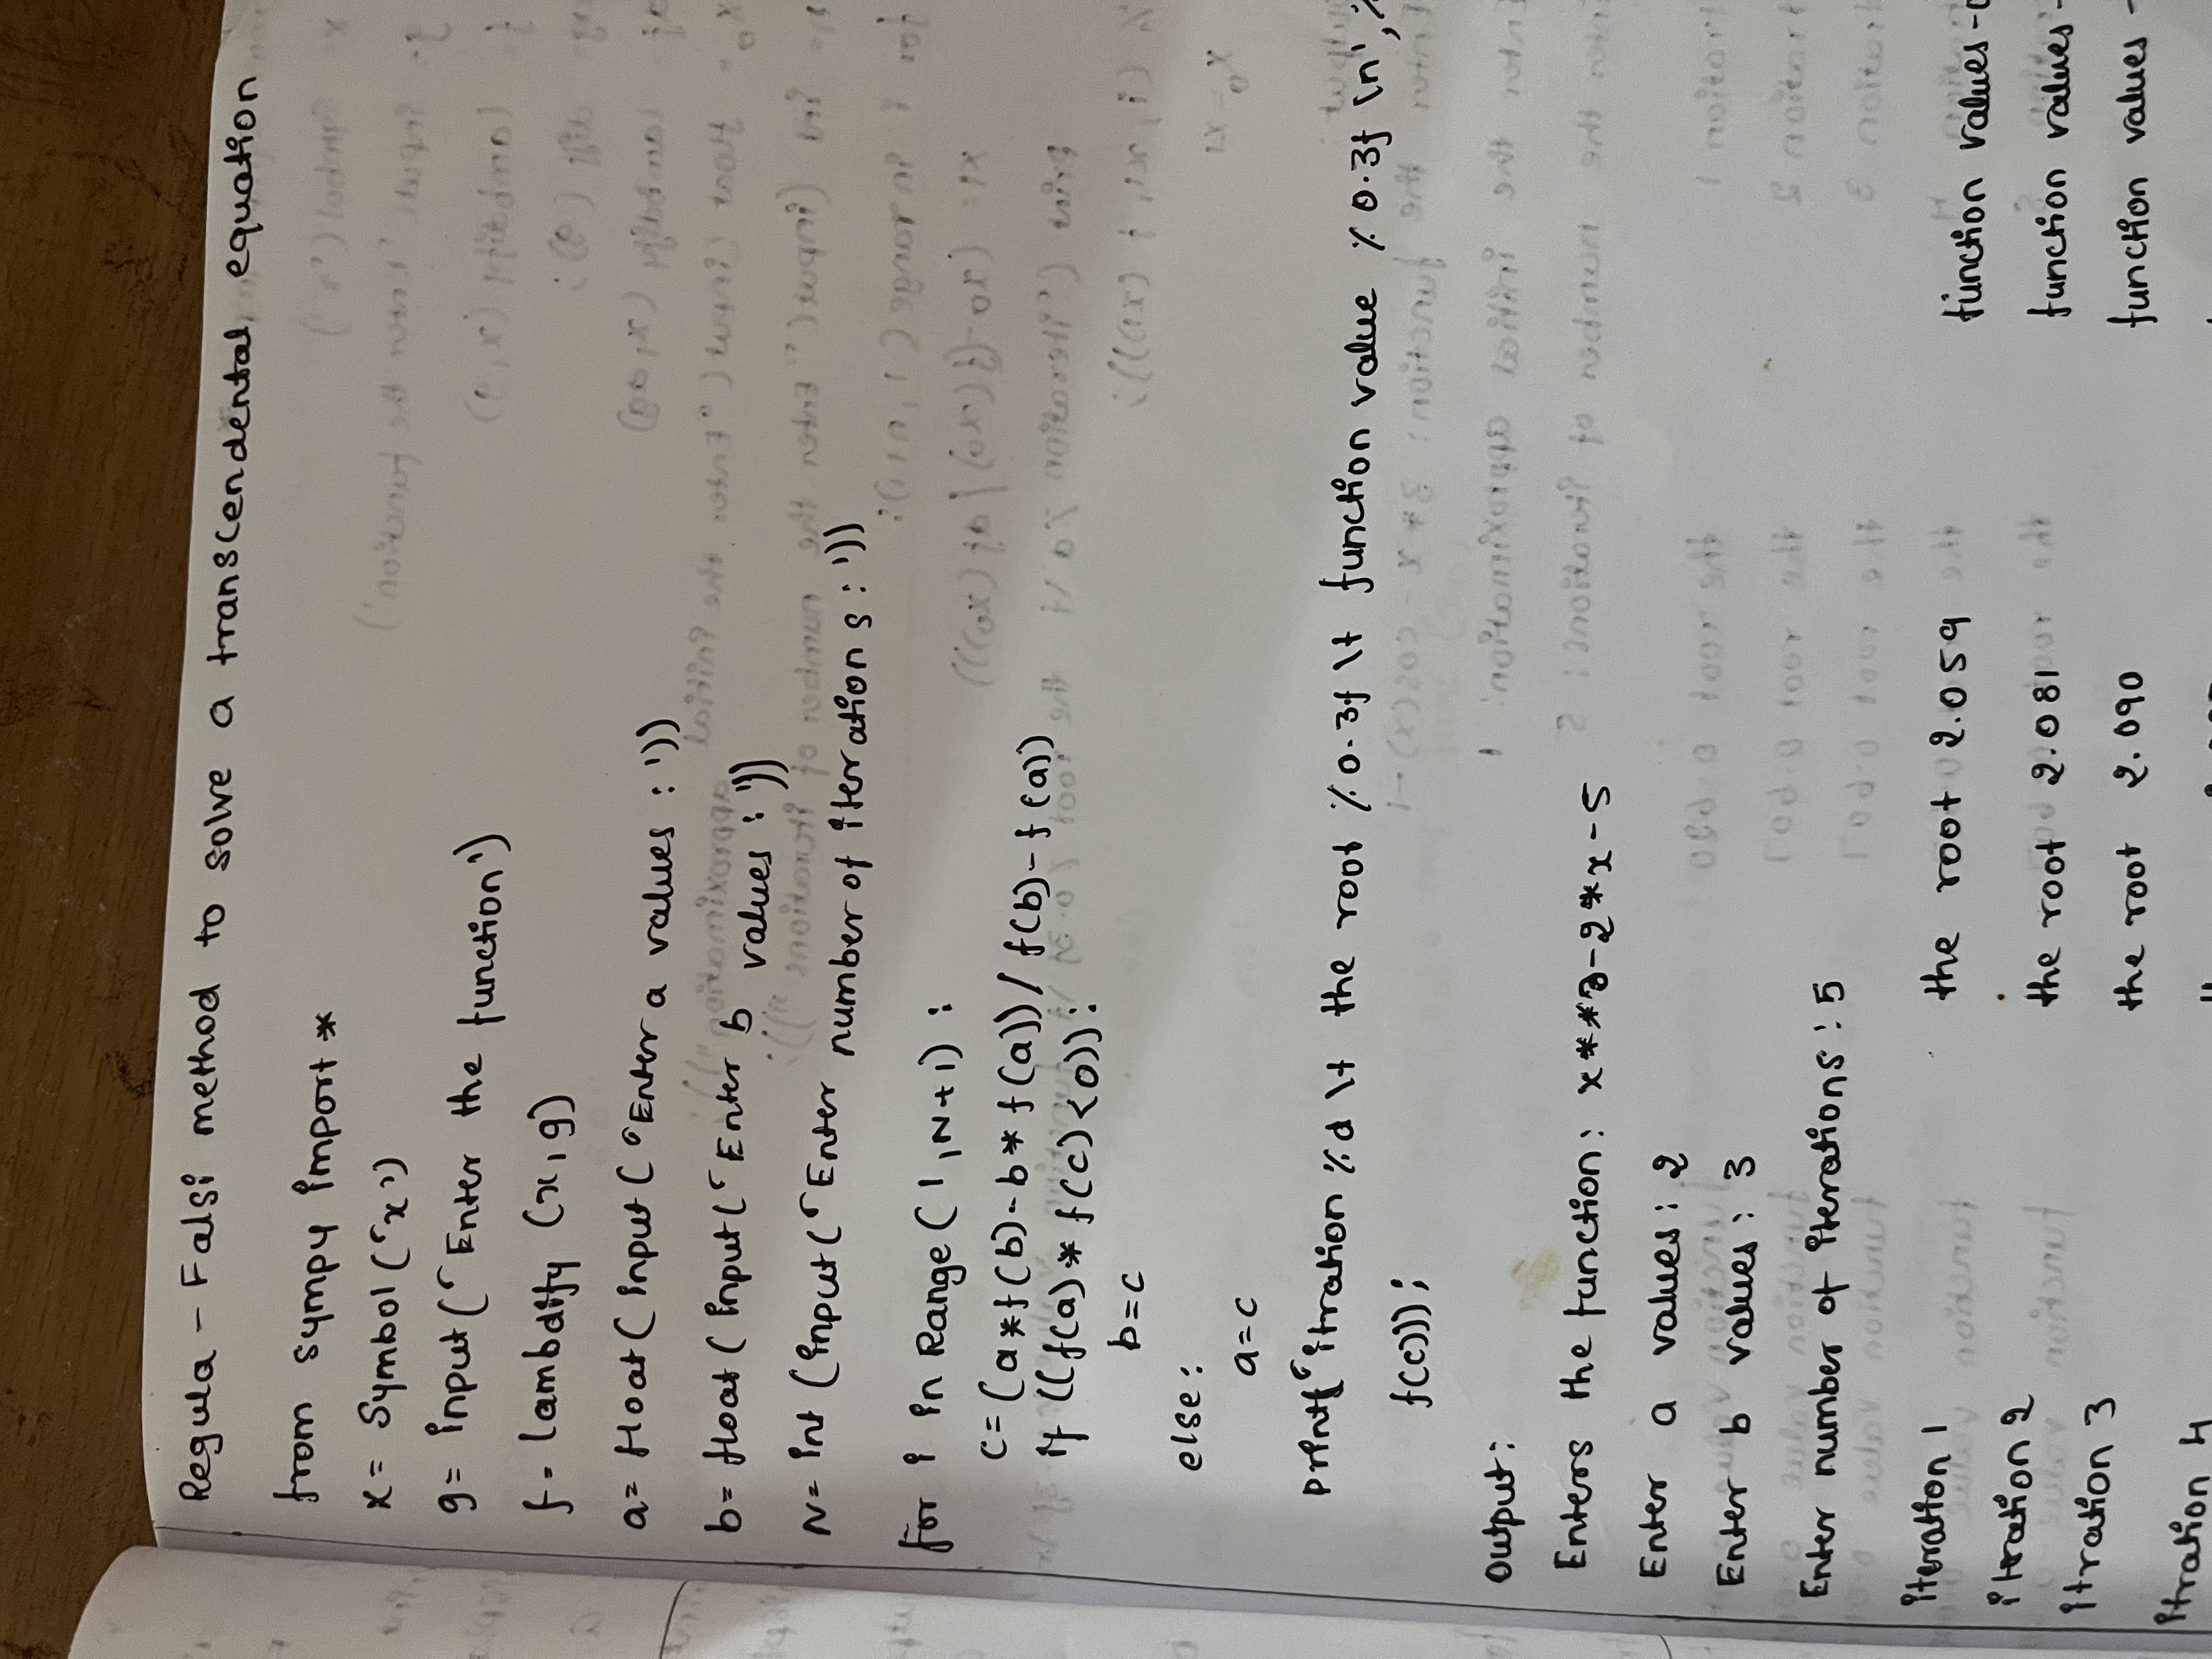 Regula - Falsi method to solve a transcendental equation
from sympy import *
x = Symbol ('x')
g = input ('Enter the function')
f = lambdify (x, g)
a = float ( input ( 'Enter a values : '))
b = float ( input ( 'Enter b values : '))
N = int (input ( 'Enter number of iterations : '))
for i in Range ( 1, N+1) :
c = (a * f(b) - b * f(a)) / f(b) - f(a))
if ((f(a) * f(c) < 0)) :
b = c
else :
a = c
print( 'itration % d \t the root % 0.3f \t function value % 0.3f \n', %
f(c))) ;
output :
Enters the function : x**3-2*x-5
Enter a values : 2
Enter b values : 3
Enter number of iterations : 5
iteration 1 the root 2.059 function values -0
iteration 2 the root 2.081 function values -
itration 3 the root 2.090 function values -
itration 4